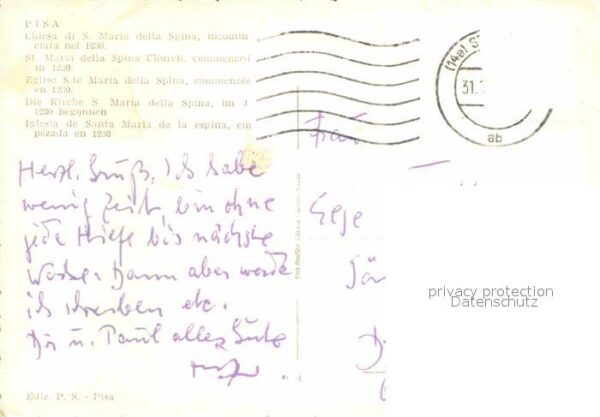 PISA
Chiesa di S. Maria della Spina, incomin-
ciata nel 1230.
St. Maria della Spina Church, commenced
in 1230.
Eglise S.te Maria della Spina, commencée
en 1230.
Die Kirche S Maria della Spina, im J
1230 begonnen
Iglesia de Santa Maria de la espina, em
pezada en 1230
(14a) S
31.
ab
Frau
Herzl. Gruß. Ich habe
wenig Zeit, bin ohne
jede Hilfe bis nächste
Woche. Dann aber werde
ich schreiben etc.
Dir u. Paul alles Gute
privacy protection
Datenschutz
Ediz. P. S. - Pisa